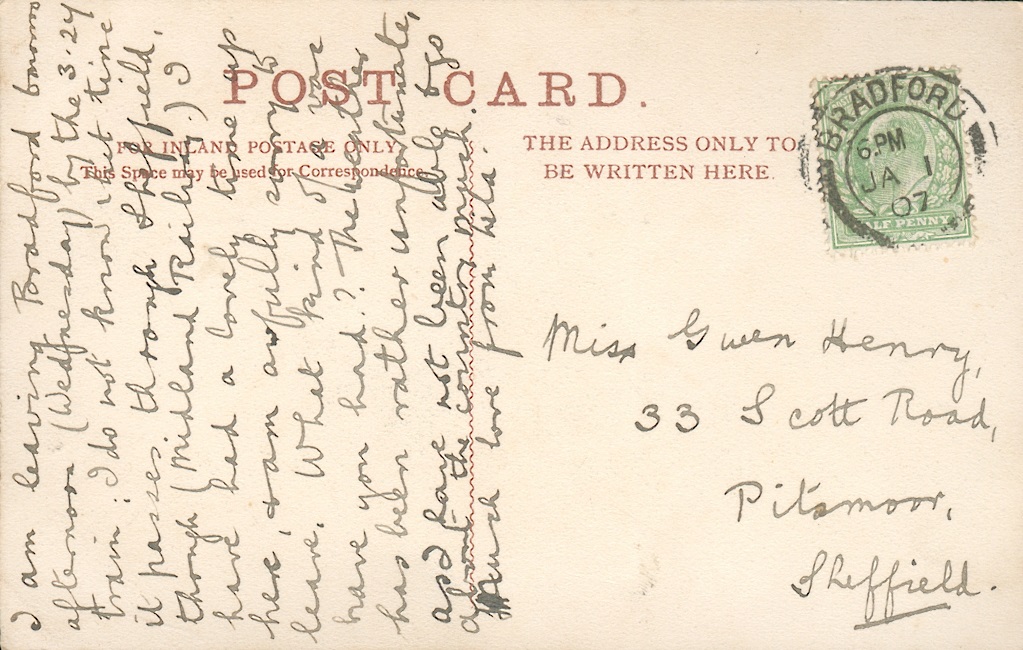 POST CARD.
FOR INLAND POSTAGE ONLY
This Space may be used for Correspondence.
THE ADDRESS ONLY TO
BE WRITTEN HERE.
BRADFORD
6.PM
JA 1
07
HALF PENNY
I am leaving Bradford tomorrow
afternoon (Wednesday) by the 3.24
train: I do not know what time
it passes through Sheffield,
though (Midland Railway.) I
have had a lovely time up
here, & am awfully sorry to
leave. What kind of a Xmas
have you had? The weather
has been rather unfortunate,
and have not been able to go
about the country much.
Much love from Ella.
Miss Gwen Henry,
33 Scott Road,
Pitsmoor,
Sheffield.